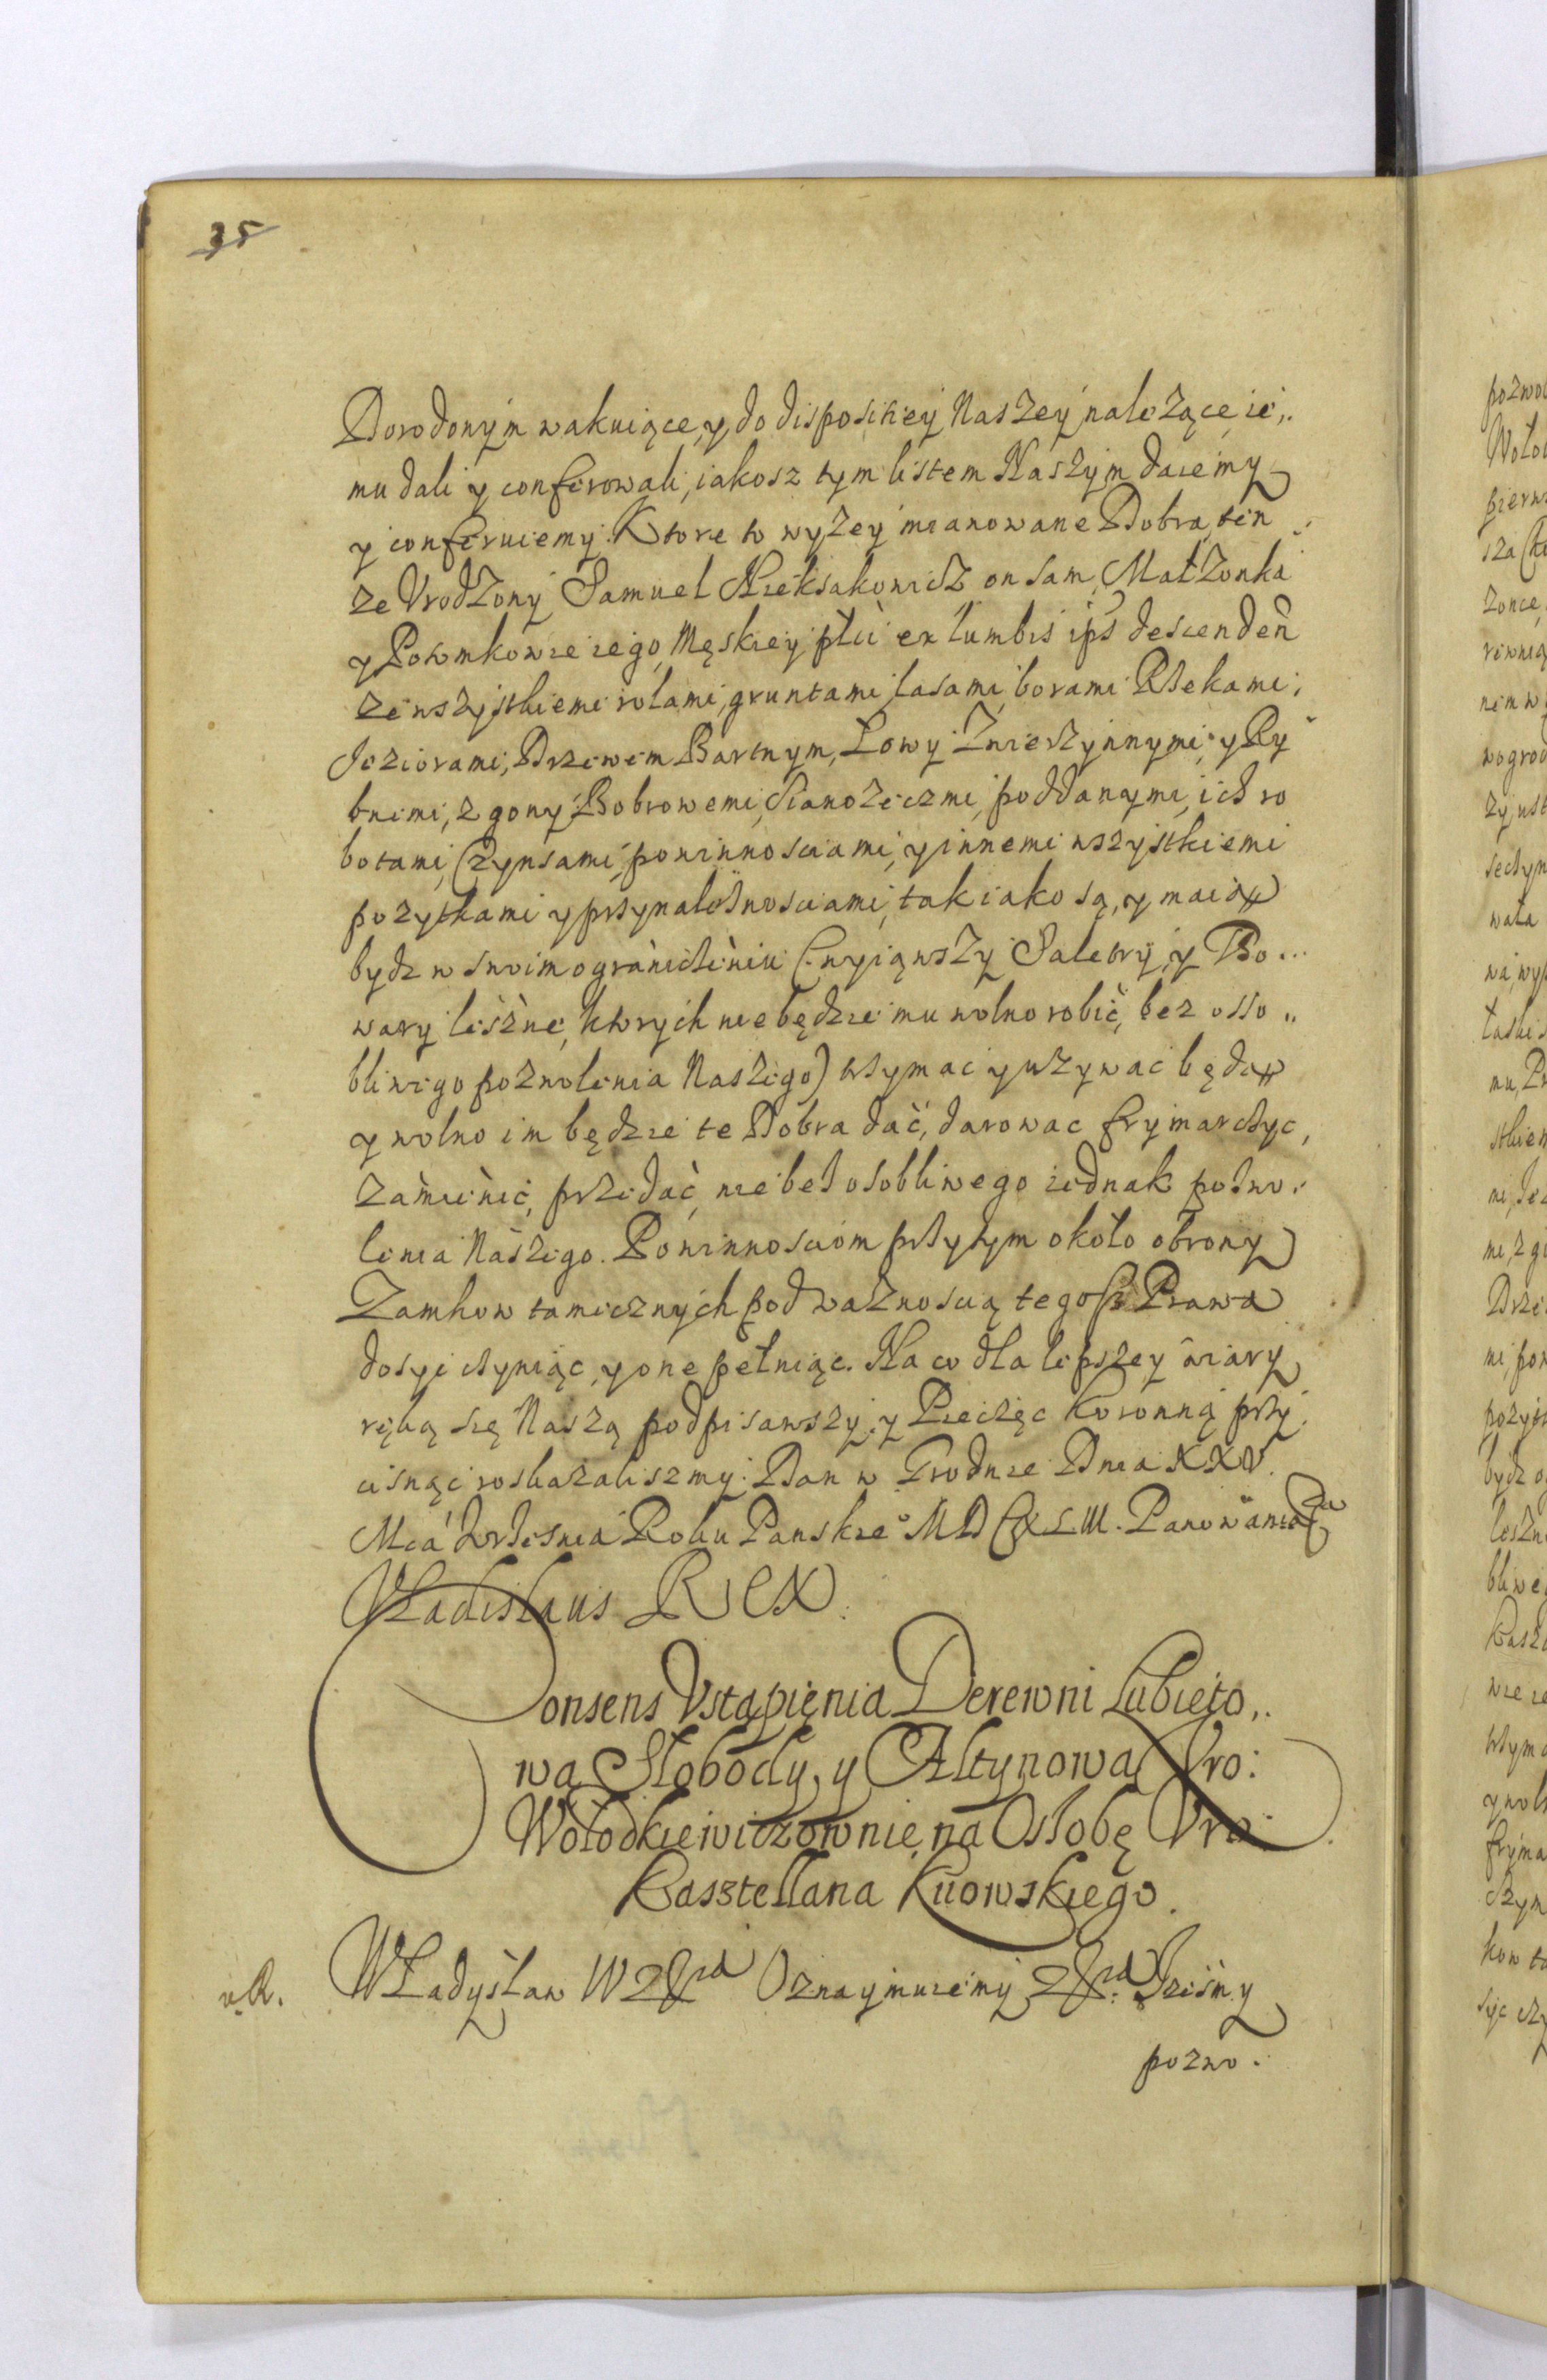 35
Dorodonym wakuiące, y do disposiciey Naszey należące ie„
mu dali y conferowali, iakosz tym listem Naszym daiemy
y conferuiemy. Ktore to wyżey mianowane Dobra, ten
ze Vrodzony Samuel Aleksakowicz on sam, Małzonka
y Potomkowie iego Męskiey płci ex lumbis ips descenden
ze wszystkiemi rolami, gruntami lasami, borami Rzekami,
Jeziorami, Drzewem Bartnym, Łowy Zwierzynnymi, y Ry
bnimi, z gony Bobrowemi, Sianożęczmi, poddanymi, ich ro
botami, Czynsami, powinnosciami, y innemi wszystkiemi
pozytkami y przynależnosciami, tak iako są, y maią
bydz w swoim ograniczeniu (wyiąwszy Saletry, y To...
wary leśne, ktorych nie będzie mu wolno robić, bez osso„
bliwego pozwolenia Naszego) trzymac y uzywac będą
y wolno im będzie te Dobra dać, darowac frymarczyc,
zamienić, przedać, nie bez osobliwego iednak pozwo.
lenia Naszego. Powinnosciom przytym około obrony
Zamkow tamecznych pod ważnoscią tegosz Prawa
dosyć czyniąc, y one pełniąc. Na co dla lepszey wiary
ręką się Naszą podpisawszy, y Pieczęc Koronną przy
cisnąc roskazaliszmy. Dan w Grodnie Dnia XXV.
Mca Wrzesnia Roku Panskie° MDCXLIII. Panowania
Vladislaus REX.
Consens Vstąpięnia Derewni Lubieto„
wą Słobody, y Altynową Vro:
Wołodkiewiczownie, na Osłobę Vro:
Kasztellana Kiiowskiego.
v.R.
Władysław IV Oznaymuiemy Iześmy
pozwo.
pozwo
Woło
pierw
zonce,
wogrod
wała